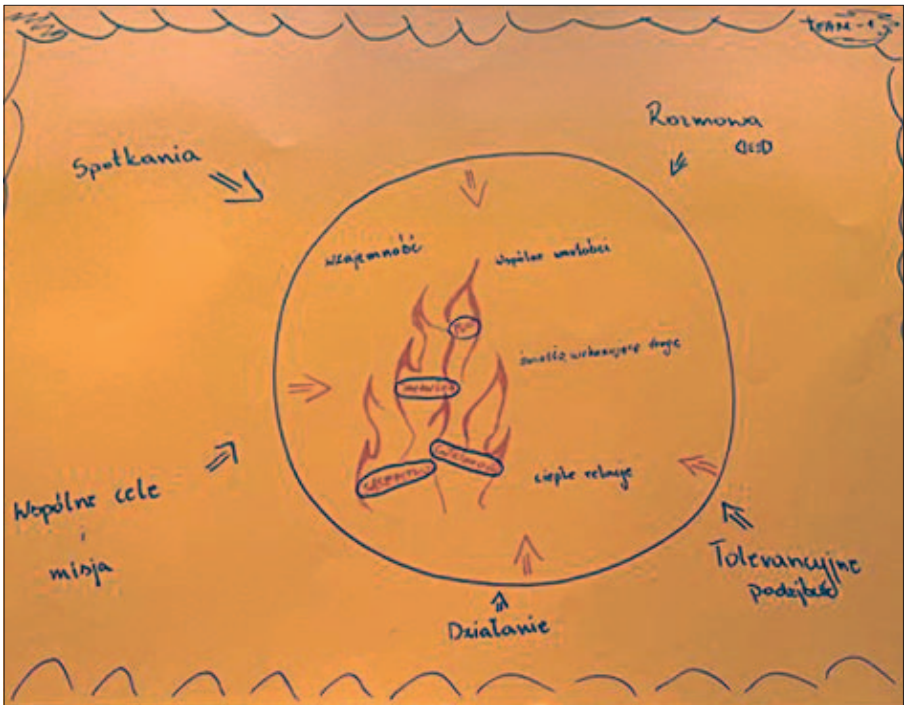 TEAM
Rozmowa
Spotkania
wzajemność
wspólne wartości
światło, wskazujące drogę
ciepłe relacje
Wspólne cele
i
misja
Tolerancyjne
podejście
Działanie